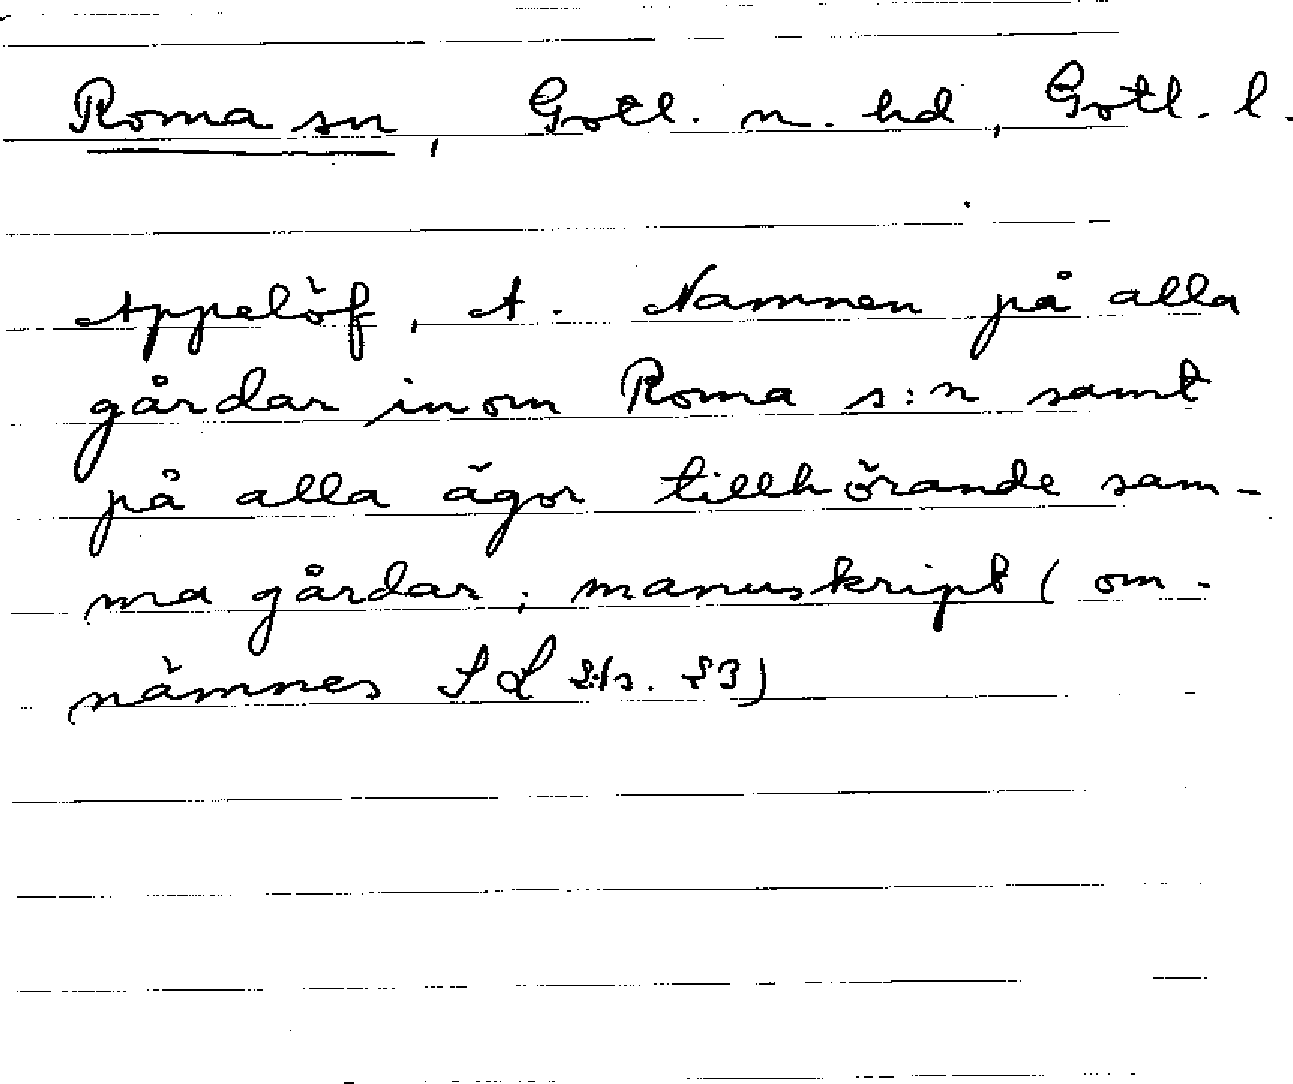 Roma sn, Gotl. n. hd, Gotl. l.
Appelöf, A. Namnen på alla
gårdar inom Roma s:n samt
på alla ägor tillhörande sam-
ma gårdar; manuskript (om-
nämnes SL s. 23)